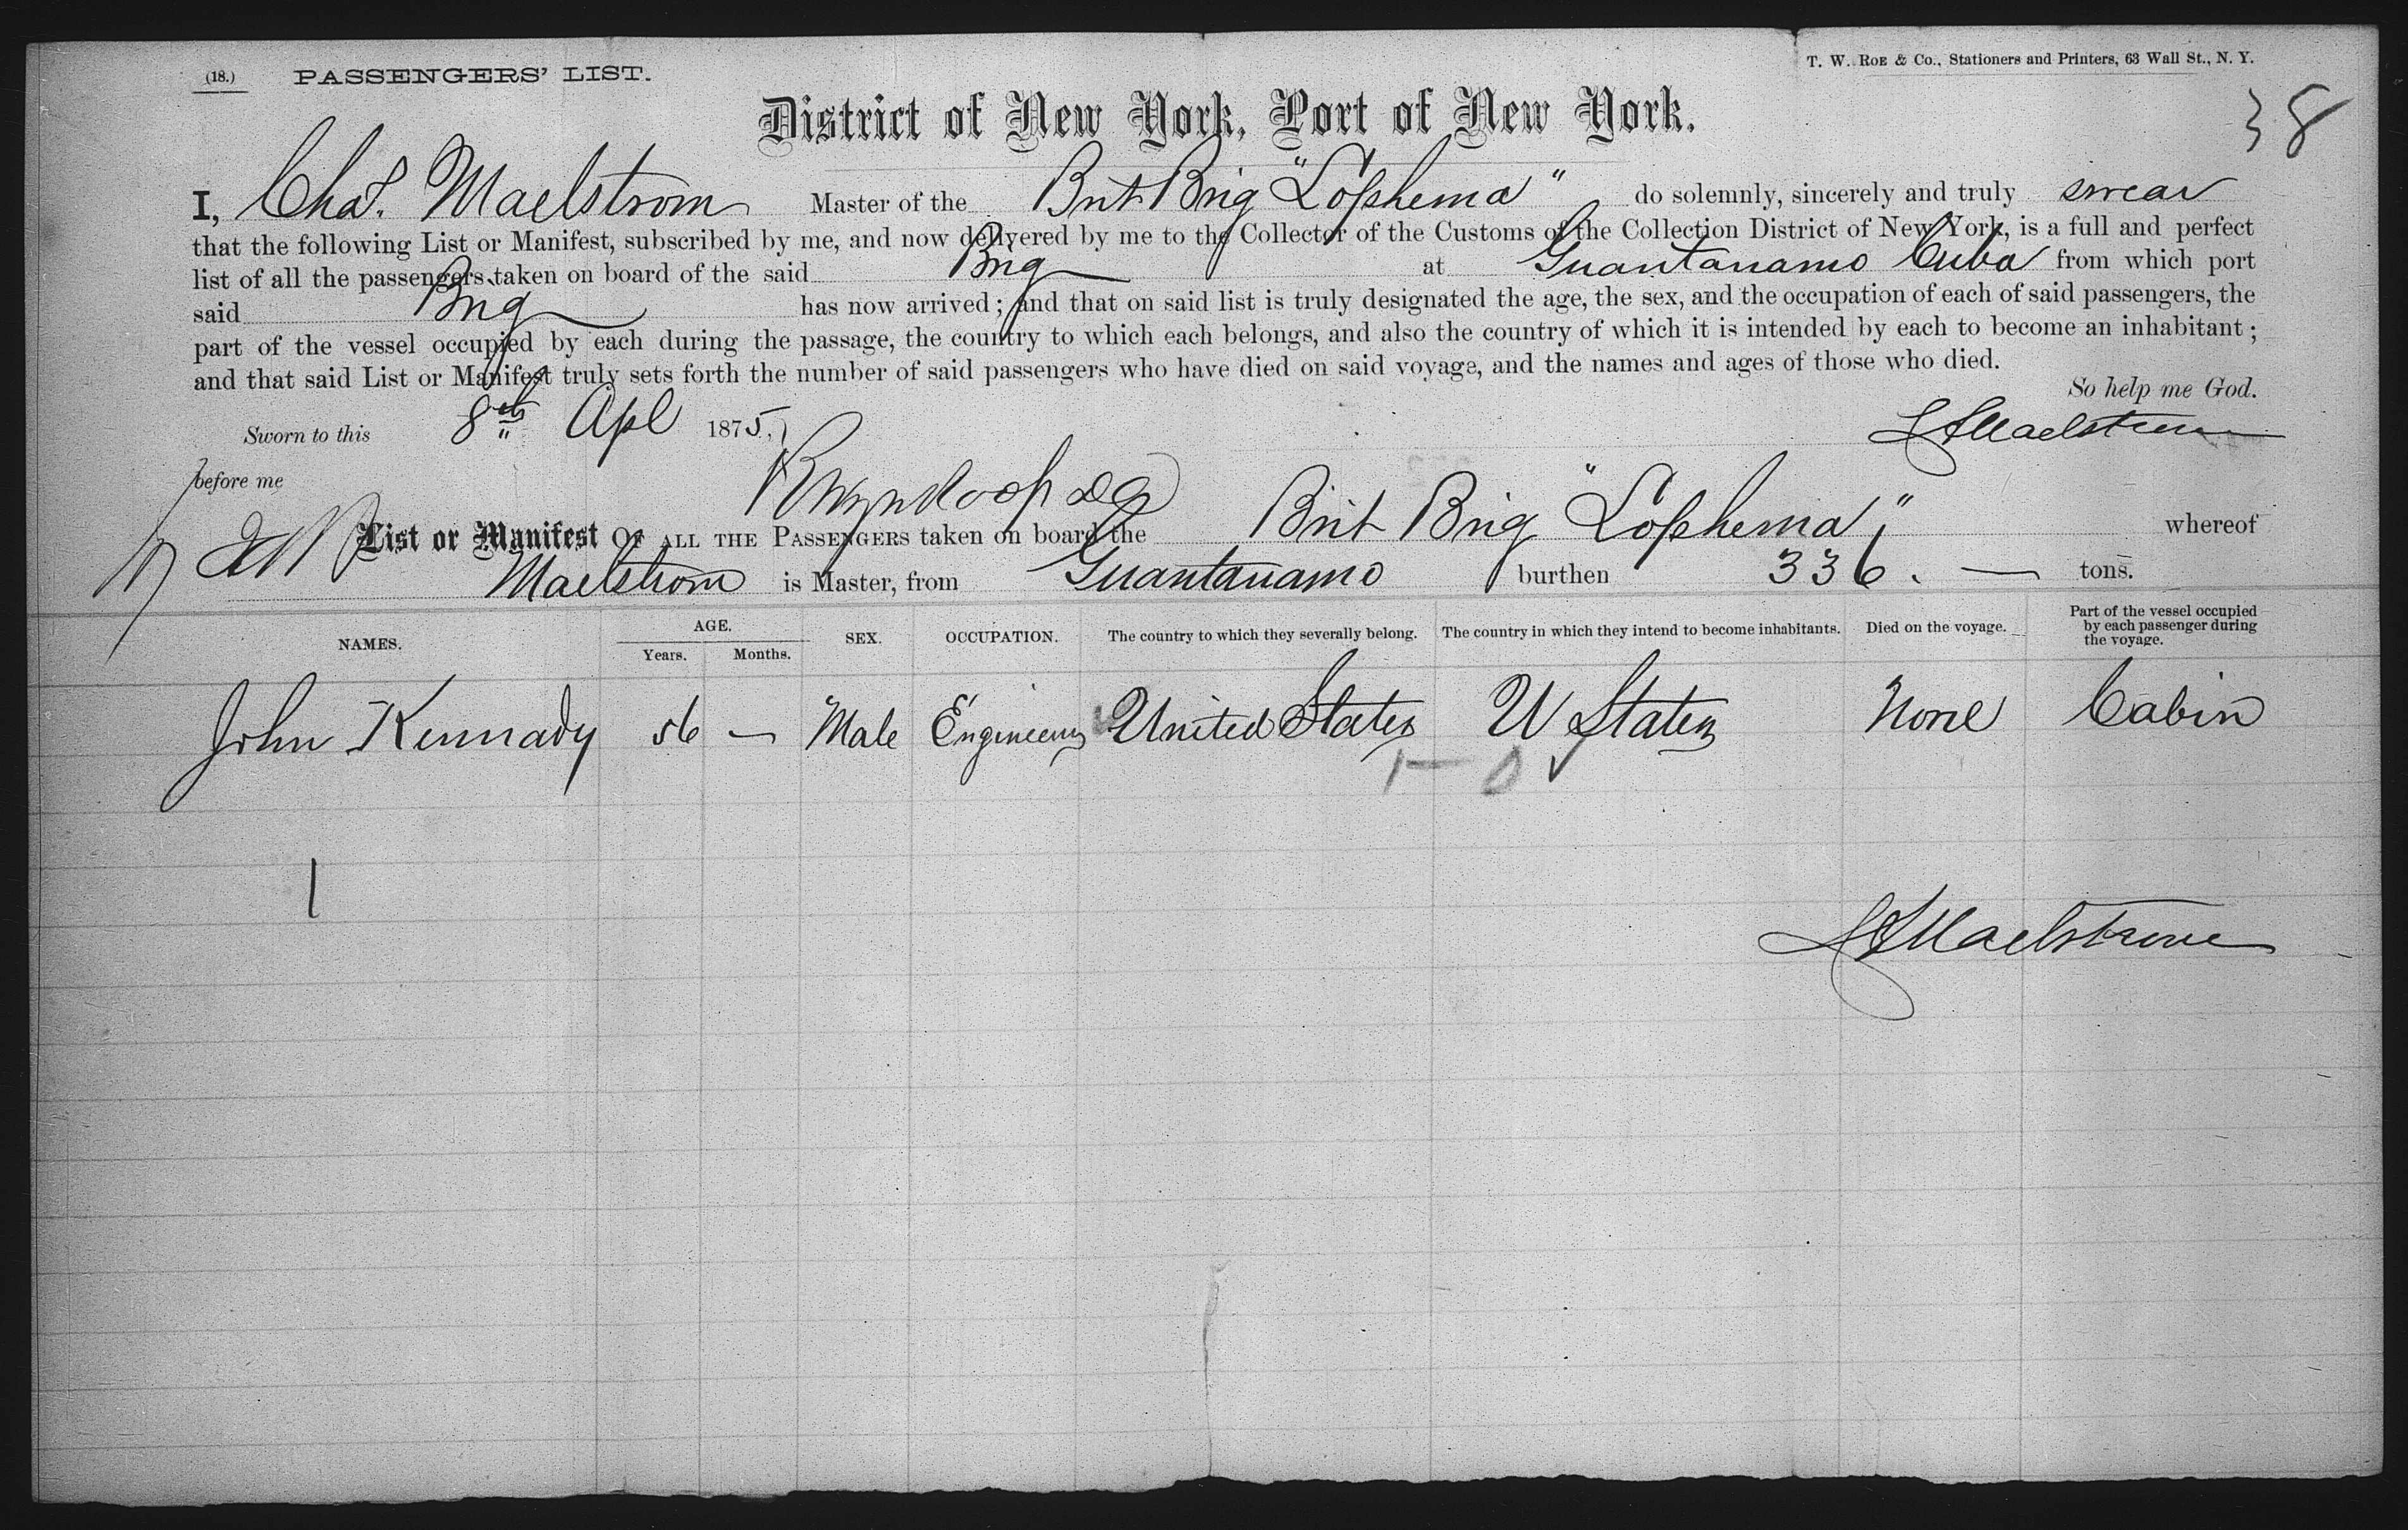 (18.) PASSENGERS' LIST.
T. W. ROE & Co., Stationers and Printers, 63 Wall St., N. Y.
38
District of New York, Port of New York.
I, Chas. Maelstrom Master of the Brit Brig "Lophema" do solemnly, sincerely and truly swear
that the following List or Manifest, subscribed by me, and now delivered by me to the Collector of the Customs of the Collection District of New York, is a full and perfect
list of all the passengers taken on board of the said Brig at Guantanamo Cuba from which port
said Brig has now arrived; and that on said list is truly designated the age, the sex, and the occupation of each of said passengers, the
part of the vessel occupied by each during the passage, the country to which each belongs, and also the country of which it is intended by each to become an inhabitant;
and that said List or Manifest truly sets forth the number of said passengers who have died on said voyage, and the names and ages of those who died.
So help me God.
Sworn to this 8th Apl 1875, Maelstrom
before me
List or Manifest OF ALL THE PASSENGERS taken on board the Brit Brig "Lophema" whereof
Maelstrom is Master, from Guantanamo burthen 336. — tons.
NAMES. AGE. Years. Months. SEX. OCCUPATION. The country to which they severally belong. The country in which they intend to become inhabitants. Died on the voyage. Part of the vessel occupied by each passenger during the voyage.
John Kennady 56 — Male Engineer United States U States None Cabin
1
Maelstrom